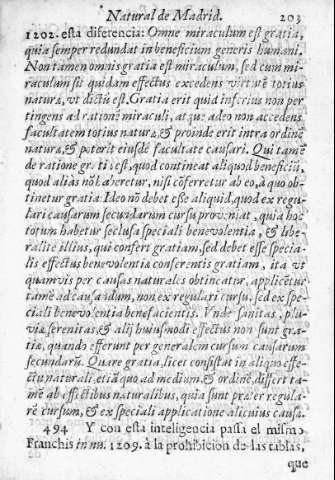 Natural de Madrid. 203
1202. esta diferencia: Omne miraculum est gratia,
quia semper redundat in beneficium generis humani.
Non tamen omnis gratia est miraculum, sed cum mi-
raculum sit quidam effectus excedens virtutẽ totius
natura, vt dictũ est. Gratia erit quid inferius non per
tingens ad rationẽ miraculi, atque adeo non accedens
facultatem totius natura, & proinde erit intra ordinẽ
natura, & poterit eiusdẽ facultate causari. Qui tamẽ
de ratione gratiæ est, quod contineat aliquod beneficiũ,
quod aliàs nõ haberetur, nisi cõferretur ab eo, à quo ob-
tinetur gratia: Ideo nõ debet esse aliquid, quod ex regu
lari causarum secundarum cursu proveniat, quia hoc
totum habetur seclusa speciali benevolentia, & libe-
ralitate illius, qui confert gratiam, sed debet esse specia-
lis effectus benevolentia conferentis gratiam, ita vt
quamvis per causas naturales obtineatur, applicetur
tamẽ ad causandum, non ex regulari cursu, sed ex spe-
ciali benevolentia benefacientis. Vnde sanitas, plu-
via, serenitas, & alij huiusmodi effectus non sunt gra-
tiæ, quando efferunt per generalem cursum causarum
secundarũ. Quare gratia, licet consistat in aliquo effe-
ctu naturali, etiã quo ad medium, & ordinẽ, differt ta-
mẽ ab effectibus naturalibus, quia sunt præter regula-
rẽ cursum, & ex speciali applicatione alicuius causa.
494 Y con esta inteligencia passa el mismo
Franchis in nu. 1209. à la prohibicion de las tablas,
que